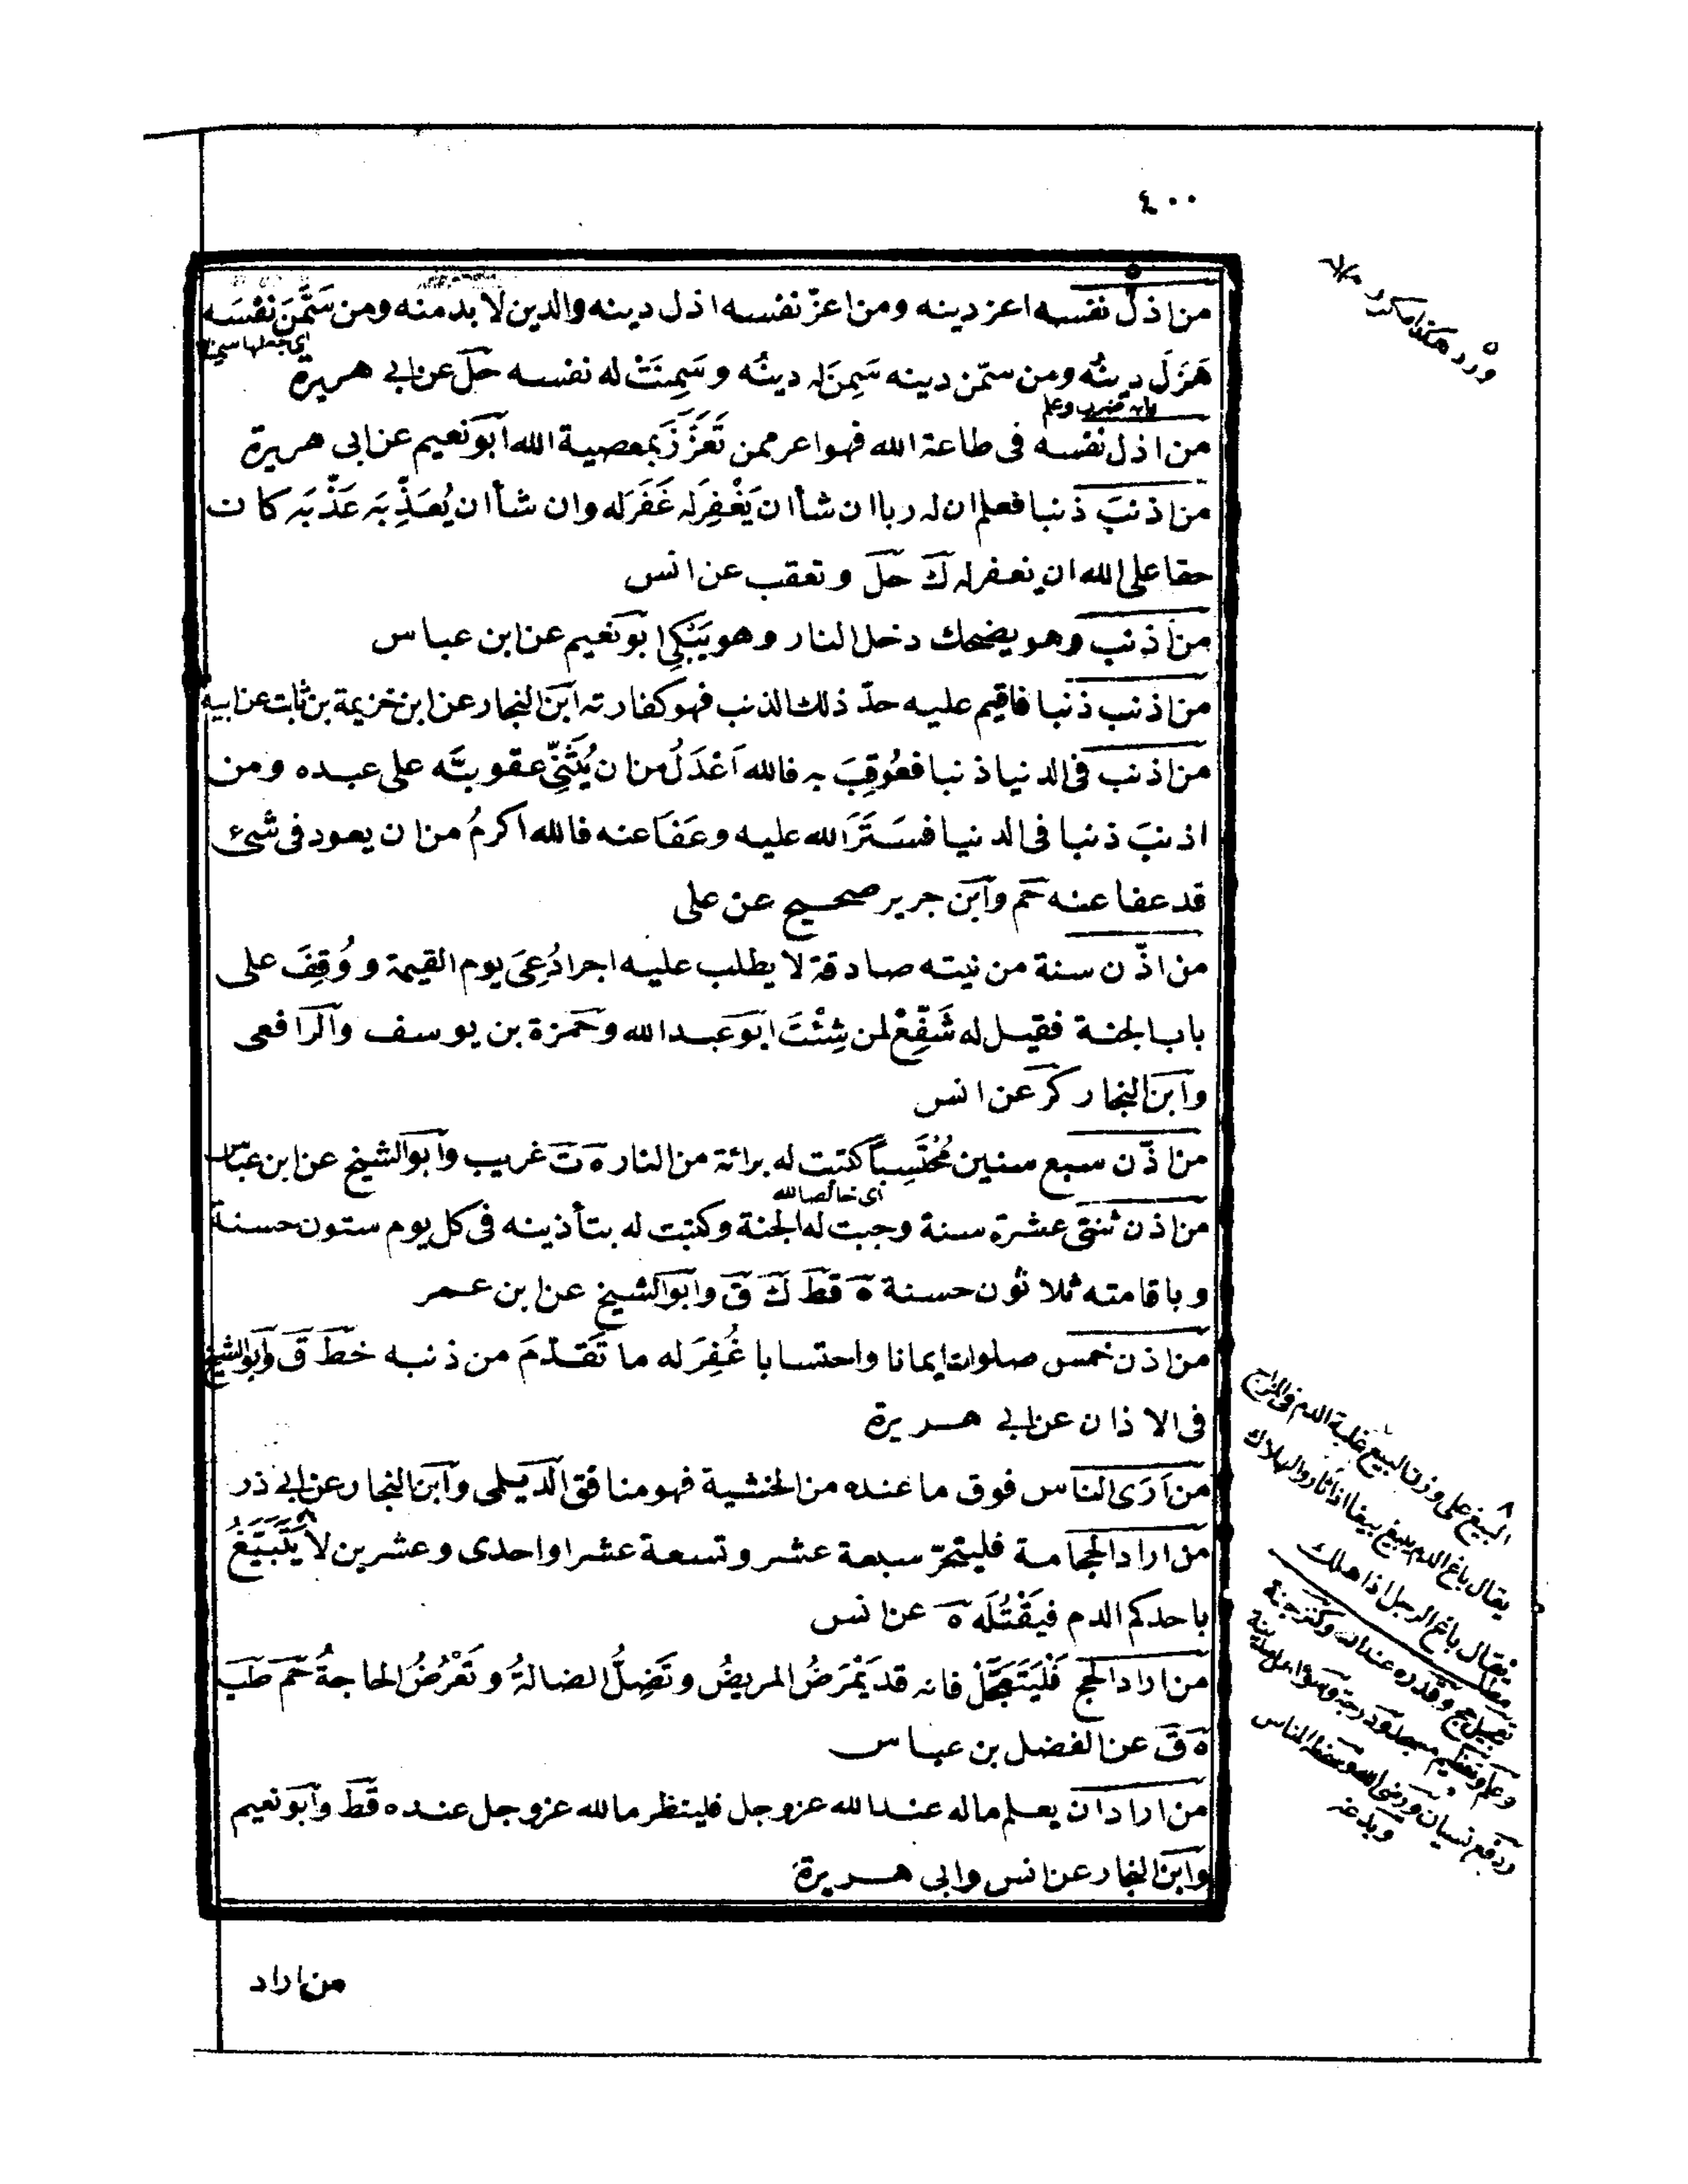 ٤٠٠
من اذل نفسه اعز دينه ومن اعزّ نفسه اذل دينه والدين لا بد منه ومن سَمَّنَ نَفْسَه
اى جعلها سمينا
هَزَلَ دينُه ومن سمّن دينه سَمِنَ له دينُه وسَمِنَتْ له نفسه حل عن ابى هريرة
من اذل نفسه فى طاعة الله فهو اعز ممن تَعَزَّزَ بمعصية الله ابو نعيم عن ابى هريرة
من اذنبَ ذنبا فعلم ان له ربا ان شأ ان يَغْفِرَ له غَفَرَ له وان شأ ان يُعَذِّبَه عَذَّبَه كان
حقا على الله ان يغفر له ك حل وتعقب عن انس
من اذنب وهو يضحك دخل النار وهو يَبْكِى ابو نعيم عن ابن عباس
من اذنب ذنبا فاقيم عليه حدّ ذلك الذنب فهو كفارته ابن النجار عن ابن خزيمة بن ثابت عن ابيه
من اذنب فى الدنيا ذنبا فعُوقِبَ به فالله اَعْدَلُ من ان يُثَنِّىَ عقوبتَه على عبده ومن
اذنبَ ذنبا فى الدنيا فسَتَرَ الله عليه وعَفَا عنه فالله اكرمُ من ان يعود فى شئ
قد عفا عنه حم وابن جرير صحيح عن على
من اذّن سنة من نيته صادقة لا يطلب عليه اجرا دُعِىَ يوم القيمة ووُقِفَ على
باب الجنة فقيل له شَفِّعْ لمن شِئْتَ ابو عبد الله وحمزة بن يوسف والرافعى
وابن النجار كر عن انس
من اذّن سبع سنين مُحْتَسِباً كتبت له برائة من النار ه ت غريب وابو الشيخ عن ابن عباس
اى خالصا لله
من اذن ثنتى عشرة سنة وجبت له الجنة وكتبت له بتأذينه فى كل يوم ستون حسنة
وباقامته ثلاثون حسنة ه قط ك ق وابو الشيخ عن ابن عمر
من اذن خمس صلوات ايمانا واحتسابا غُفِرَ له ما تَقَدَّمَ من ذنبه خط ق وابو الشيخ
فى الاذان عن ابى هريرة
من اَرَى الناس فوق ما عنده من الخشية فهو منافق الديلمى وابن النجار عن ابى ذر
من اراد الحجامة فليتحرّ سبعة عشر وتسعة عشر او احدى وعشرين لا يَتَبَيَّغُ
باحدكم الدم فيَقْتُلَه ه عن انس
من اراد الحج فَلْيَتَعَجَّلْ فانه قد يَمْرَضُ المريضُ وتَضِلُّ الضالةُ وتَعْرُضُ الحاجةُ حم طب
ه ق عن الفضل بن عباس
من اراد ان يعلم ما له عند الله عز وجل فلينظر ما لله عز وجل عنده قط وابو نعيم
وابن النجار عن انس وابى هريرة
البيغ على وزن البيع غلبة الدم فى المزاج
يقال باغ الدم يبيغ بيغا اذا ثار والهلاك
يقال باغ الرجل اذا هلك
من اراد